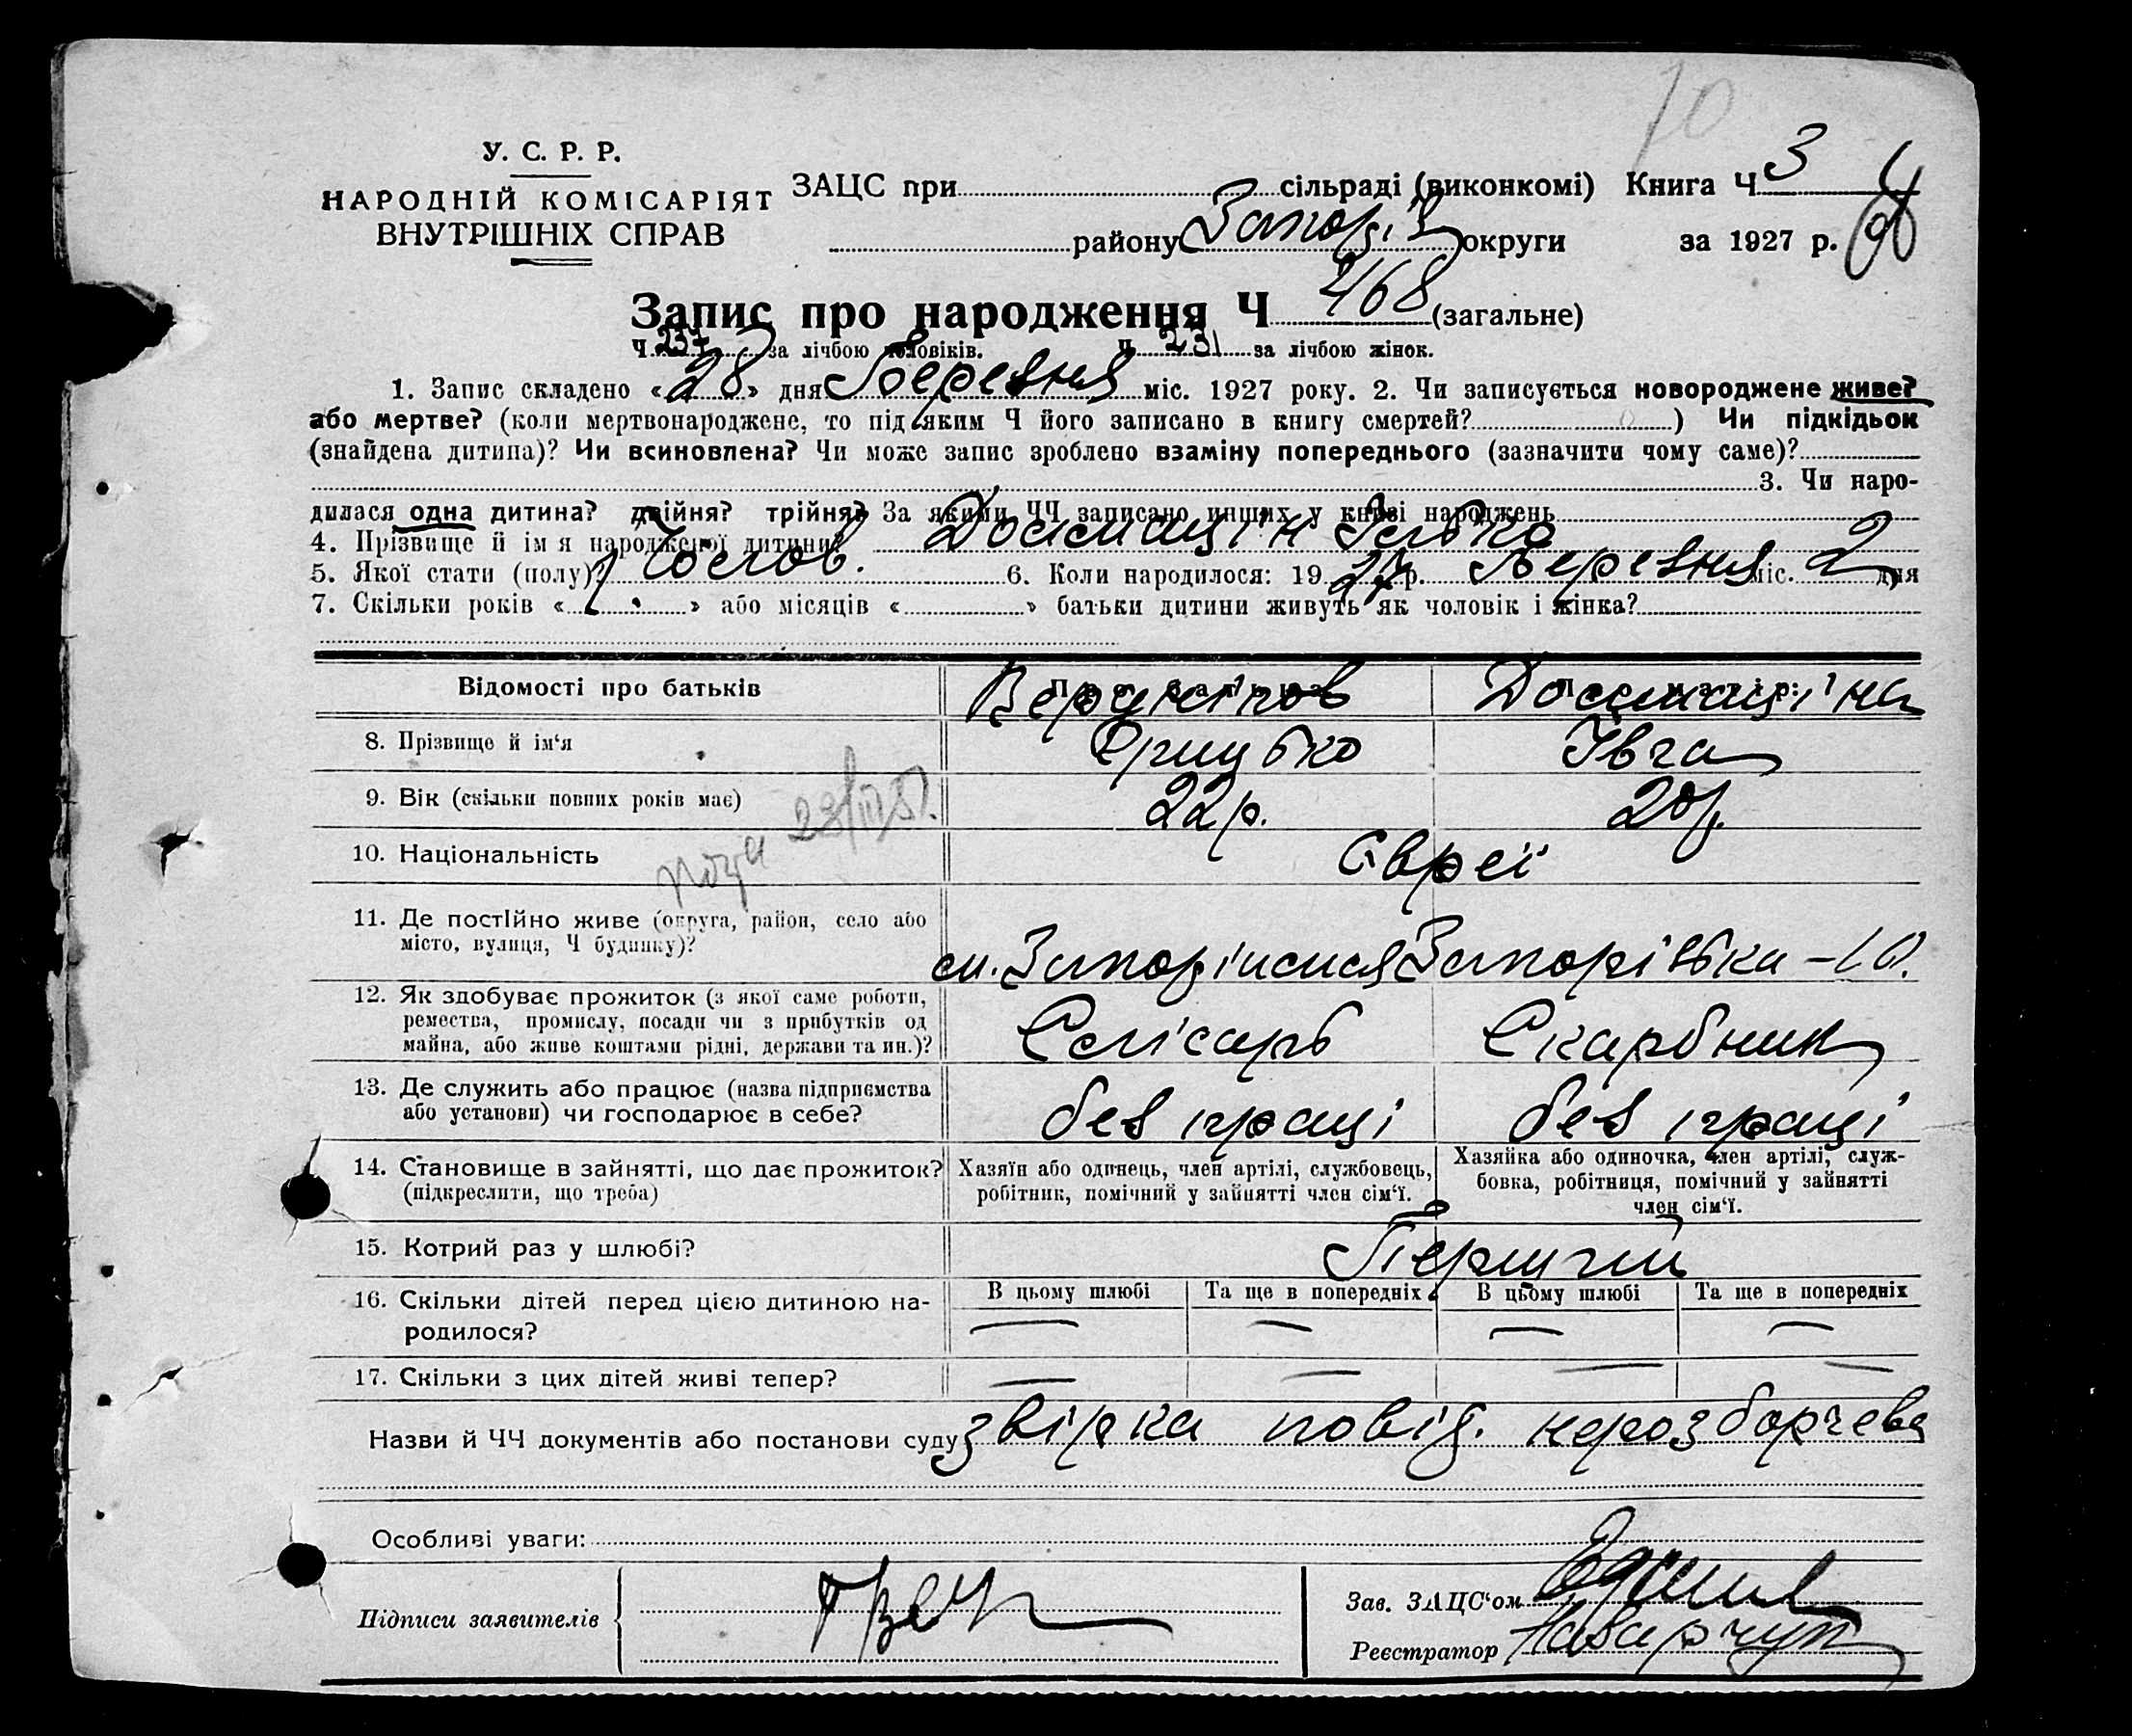 70
У. С. Р. Р.
НАРОДНІЙ КОМІСАРІЯТ
ВНУТРІШНІХ СПРАВ
ЗАЦС при сільраді (виконкомі) Книга Ч 3
району Запоріз округи за 1927 р.
Запис про народження Ч 468 (загальне)
Ч 237 за лічбою чоловіків. Ч 231 за лічбою жінок.
1. Запис складено «28» дня Березня міс. 1927 року. 2. Чи записується новороджене живе?
або мертве? (коли мертвонароджене, то під яким Ч його записано в книгу смертей? ) Чи підкідьок
(знайдена дитина)? Чи всиновлена? Чи може запис зроблено взаміну попереднього (зазначити чому саме)?
3. Чи наро-
дилася одна дитина? двійня? трійня? За якими ЧЧ записано инших у книзі народжень
4. Прізвище й ім я народженої дитини? Ілько
5. Якої стати (полу)? Чолов. 6. Коли народилося: 19 27 р. Березня міс. 2 дня
7. Скільки років « 1 . » або місяців « » батьки дитини живуть як чоловік і жінка?
Відомості про батьків
Про батька
Про матір:
8. Прізвище й ім‘я Грицько Івга
9. Вік (скільки повних років має) 22 р. 20 р.
10. Національність Євреї
11. Де постійно живе (округа, район, село або
місто, вулиця, Ч будинку)?
12. Як здобуває прожиток (з якої саме роботи,
ремества, промислу, посади чи з прибутків од
майна, або живе коштами рідні, держави та ин.)? Слісарь Скарбник
13. Де служить або працює (назва підприємства
або установи) чи господарює в себе? без праці без праці
14. Становище в зайнятті, що дає прожиток?
(підкреслити, що треба)
Хазяїн або одинець, член артілі, службовець,
робітник, помічний у зайнятті член сім‘ї.
Хазяйка або одиночка, член артілі, служ-
бовка, робітниця, помічний у зайнятті
член сім‘ї.
15. Котрий раз у шлюбі? Перший
16. Скільки дітей перед цією дитиною на-
родилося?
В цьому шлюбі Та ще в попередніх В цьому шлюбі Та ще в попередніх
— — — —
17. Скільки з цих дітей живі тепер? — — — —
Назви й ЧЧ документів або постанови суду звірка повід.
Особливі уваги:
Підписи заявителів
Зав. ЗАЦС‘ом
Реєстратор